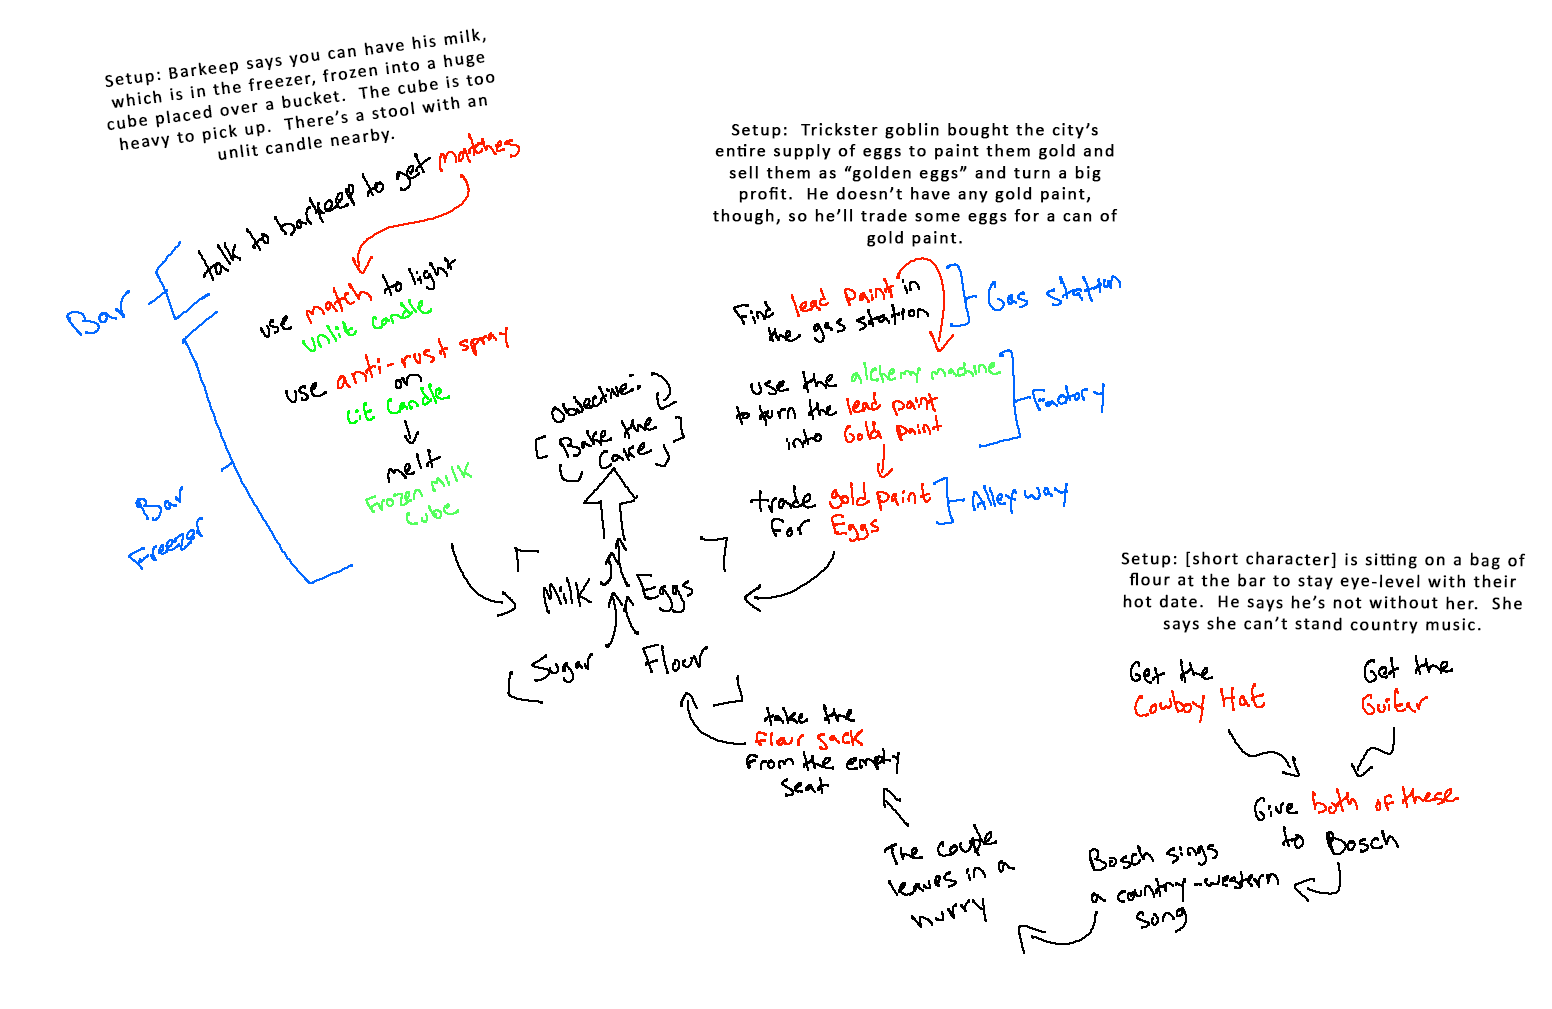 Setup: Barkeep says you can have his milk,
which is in the freezer, frozen into a huge
cube placed over a bucket. The cube is too
heavy to pick up. There's a stool with an
unlit candle nearby.
talk to barkeep to get matches
Bar
use match to light
unlit candle
use anti-rust spray
on
Lit Candle
melt
Frozen Milk
Cube
Bar
Freezer
Objective:
[Bake the
Cake]
Setup: Trickster goblin bought the city's
entire supply of eggs to paint them gold and
sell them as “golden eggs” and turn a big
profit. He doesn't have any gold paint,
though, so he'll trade some eggs for a can of
gold paint.
Find lead paint in
the gas station
Gas station
use the alchemy machine
to turn the lead paint
into Gold paint
Factory
trade gold paint
For Eggs
Alleyway
Milk Eggs
Sugar Flour
take the
flour sack
From the empty
seat
The couple
leaves in a
hurry
Setup: [short character] is sitting on a bag of
flour at the bar to stay eye-level with their
hot date. He says he's not without her. She
says she can't stand country music.
Get the
Cowboy Hat
Get the
Guitar
Give both of these
to Bosch
Bosch sings
a country-western
song